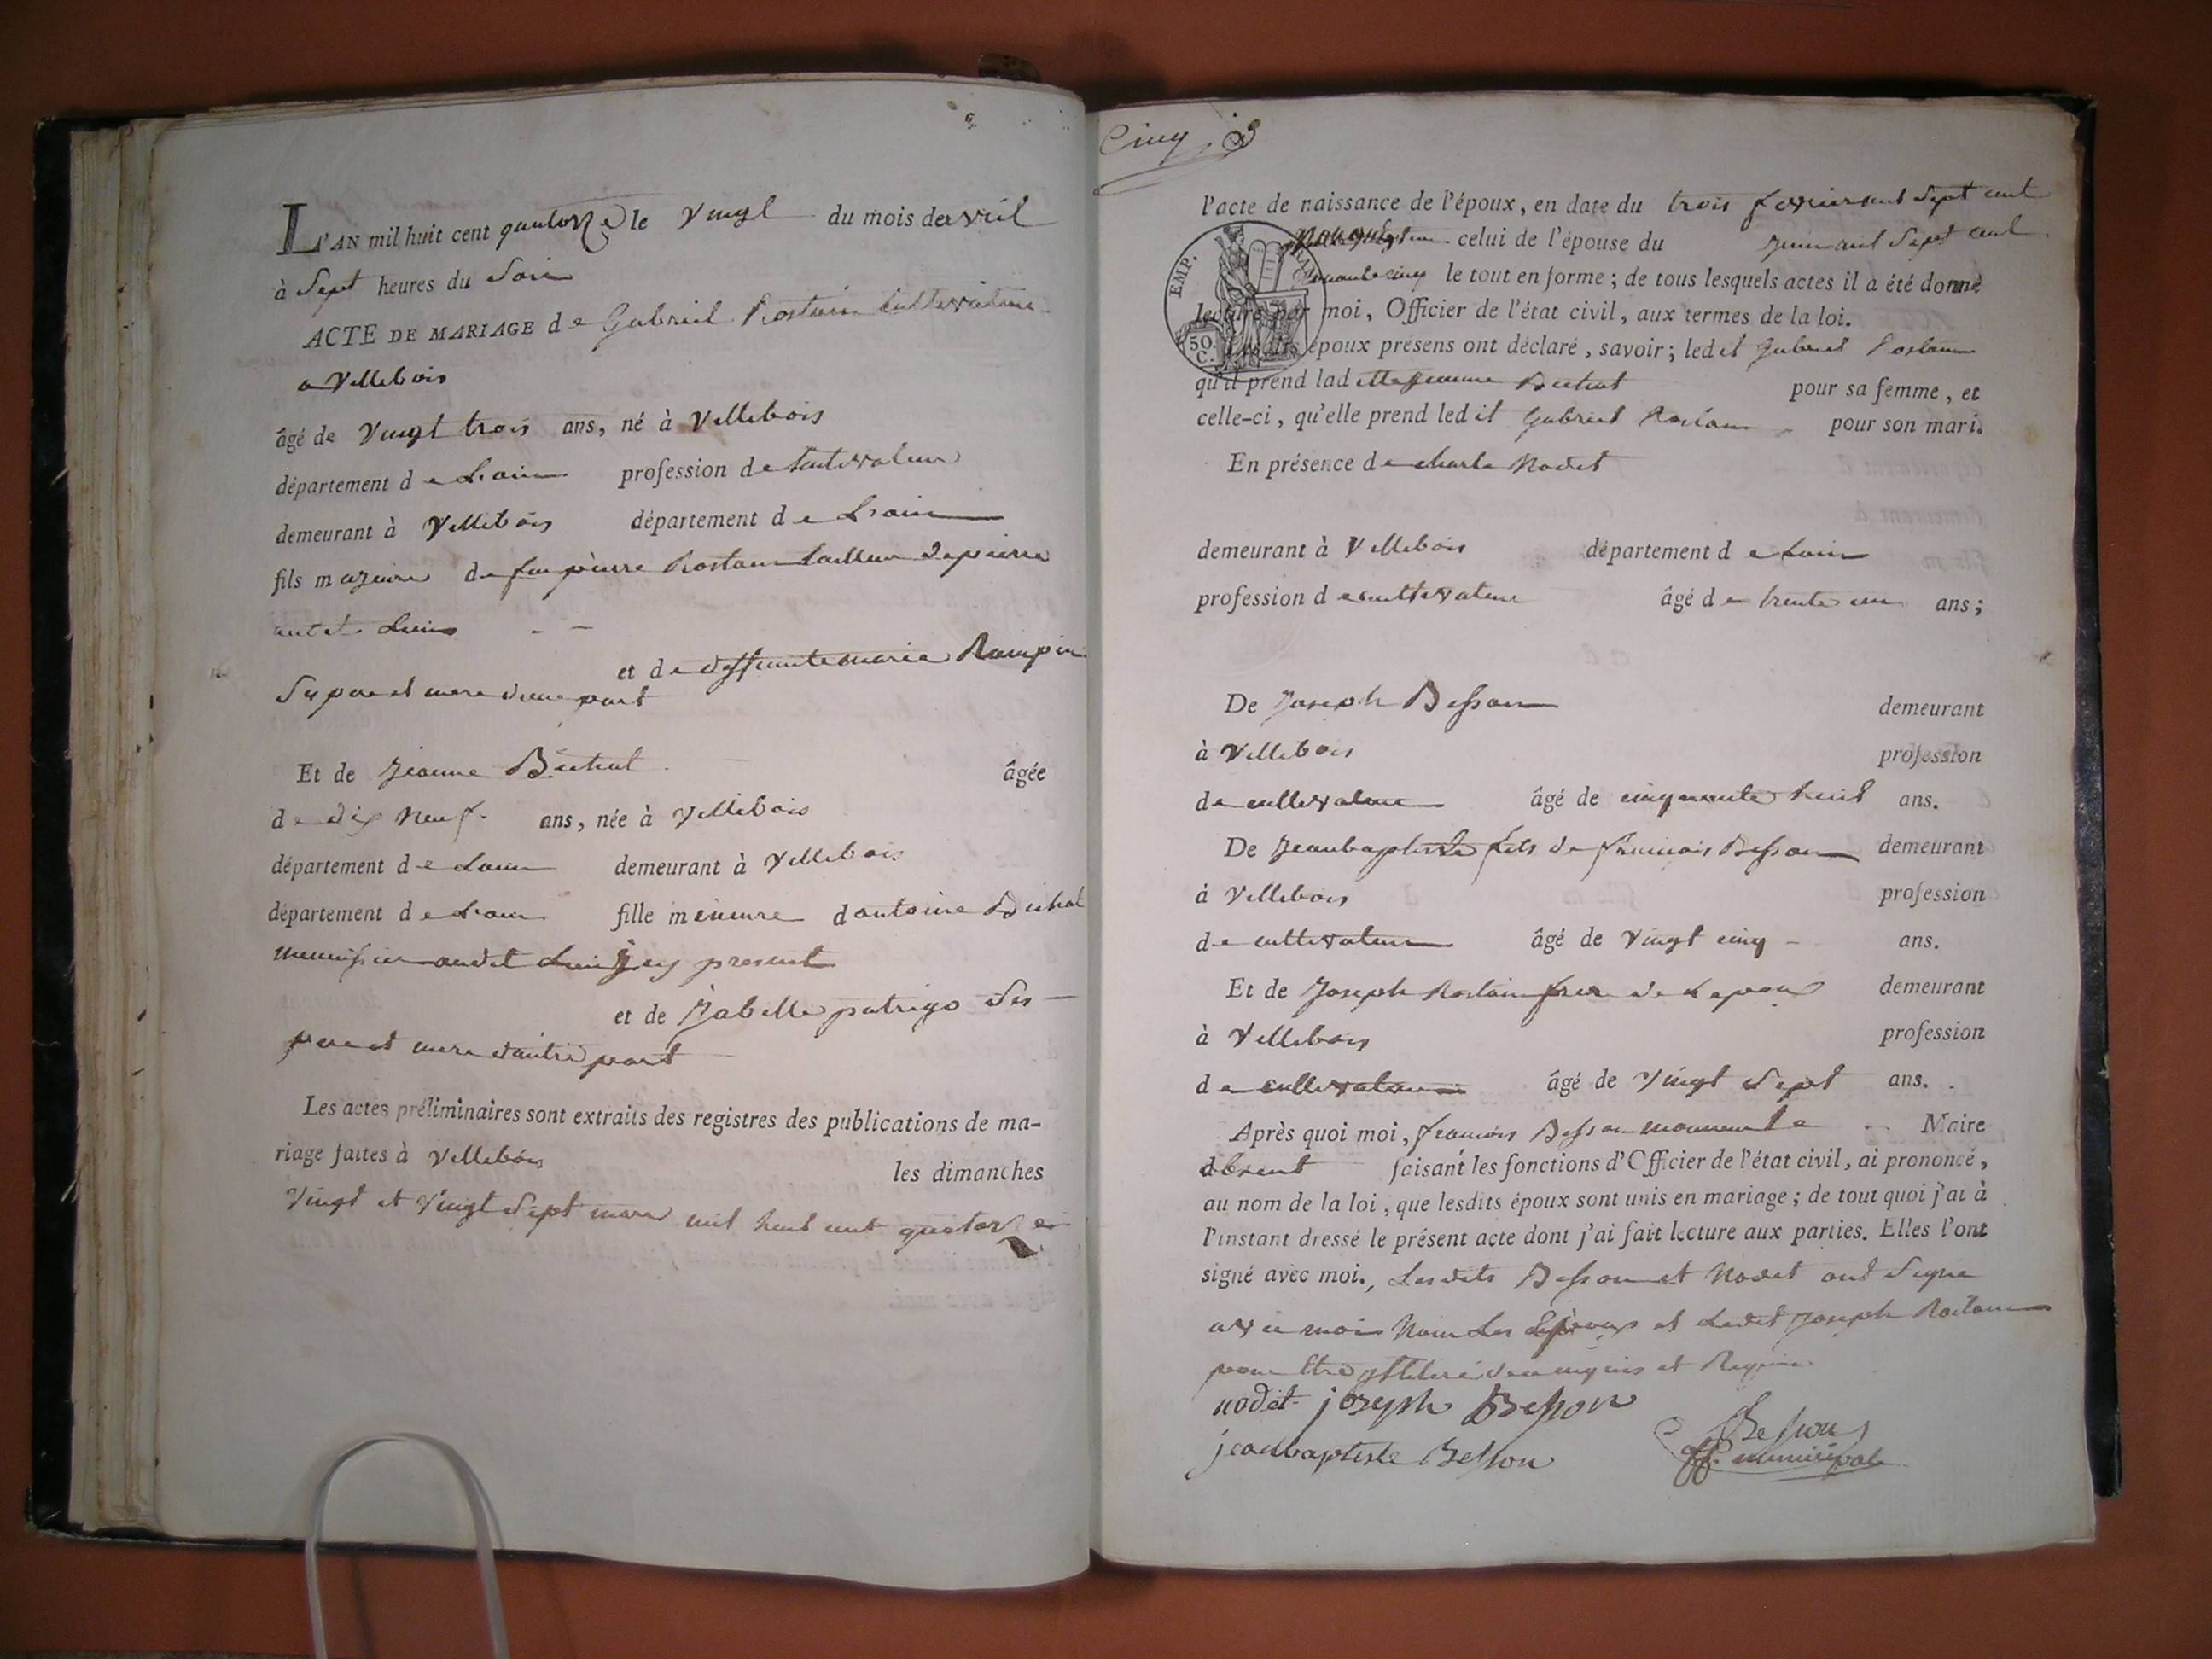 L'AN mil huit cent quatorze le vingt du mois davril
à Sept heures du Soir
ACTE DE MARIAGE de Gabriel Rostain cultivateur
a Villebois
âgé de vingt trois ans, né à Villebois
département de Lain profession de cultivateur
demeurant à Villebois département de Lain
fils majeure de feu pierre Rostain tailleur depierre
audit lieu
et de deffunte marie Rampin
Ses pere et mere dune part
Et de Jeanne Buthul âgée
de dix neuf ans, née à Villebois
département de Lain demeurant à Villebois
département de Lain fille mineure dantoine
menuisier audit lieu present
et de Isabelle patrigo Ses
pere et mere dautre part
Les actes préliminaires sont extraits des registres des publications de ma-
riage faites à Villebois les dimanches
Vingt et Vingt Sept mars mil huit cent quatorze
Cinq
l'acte de naissance de l'époux, en date du trois fevrier mil Sept cent
celui de l'épouse du mil Sept cent
EMP. FRAN.
le tout en forme; de tous lesquels actes il a été donné
lecture par moi, Officier de l'état civil, aux termes de la loi.
50 C.
Lesdits époux présens ont déclaré, savoir; ledit Gabriel Rostain
qu'il prend ladite Jeanne pour sa femme, et
celle-ci, qu'elle prend ledit Gabriel Rostain pour son mari.
En présence de charle Nodet
demeurant à Villebois département de Lain
profession de cultivateur âgé de trente un ans;
De Joseph Besson demeurant
à Villebois profession
de cultivateur âgé de cinquante huit ans.
De Jeanbaptiste fils de francois Besson demeurant
à Villebois profession
de cultivateur âgé de Vingt cinq ans.
Et de Joseph Rostain frere de Lepoux demeurant
à Villebois profession
de cultivateur âgé de Vingt Sept ans.
Après quoi moi, francois Besson Maire
absent faisant les fonctions d'Officier de l'état civil, ai prononcé,
au nom de la loi, que lesdits époux sont unis en mariage; de tout quoi j'ai à
l'instant dressé le présent acte dont j'ai fait lecture aux parties. Elles l'ont
signé avec moi., Lesdits Besson et Nodet ont Signe
avec moi Non Les Epoux et Ledit Joseph Rostain
pour Etre et Requis
nodet joseph Besson
jeanbaptiste Besson
Besson
off. municipale